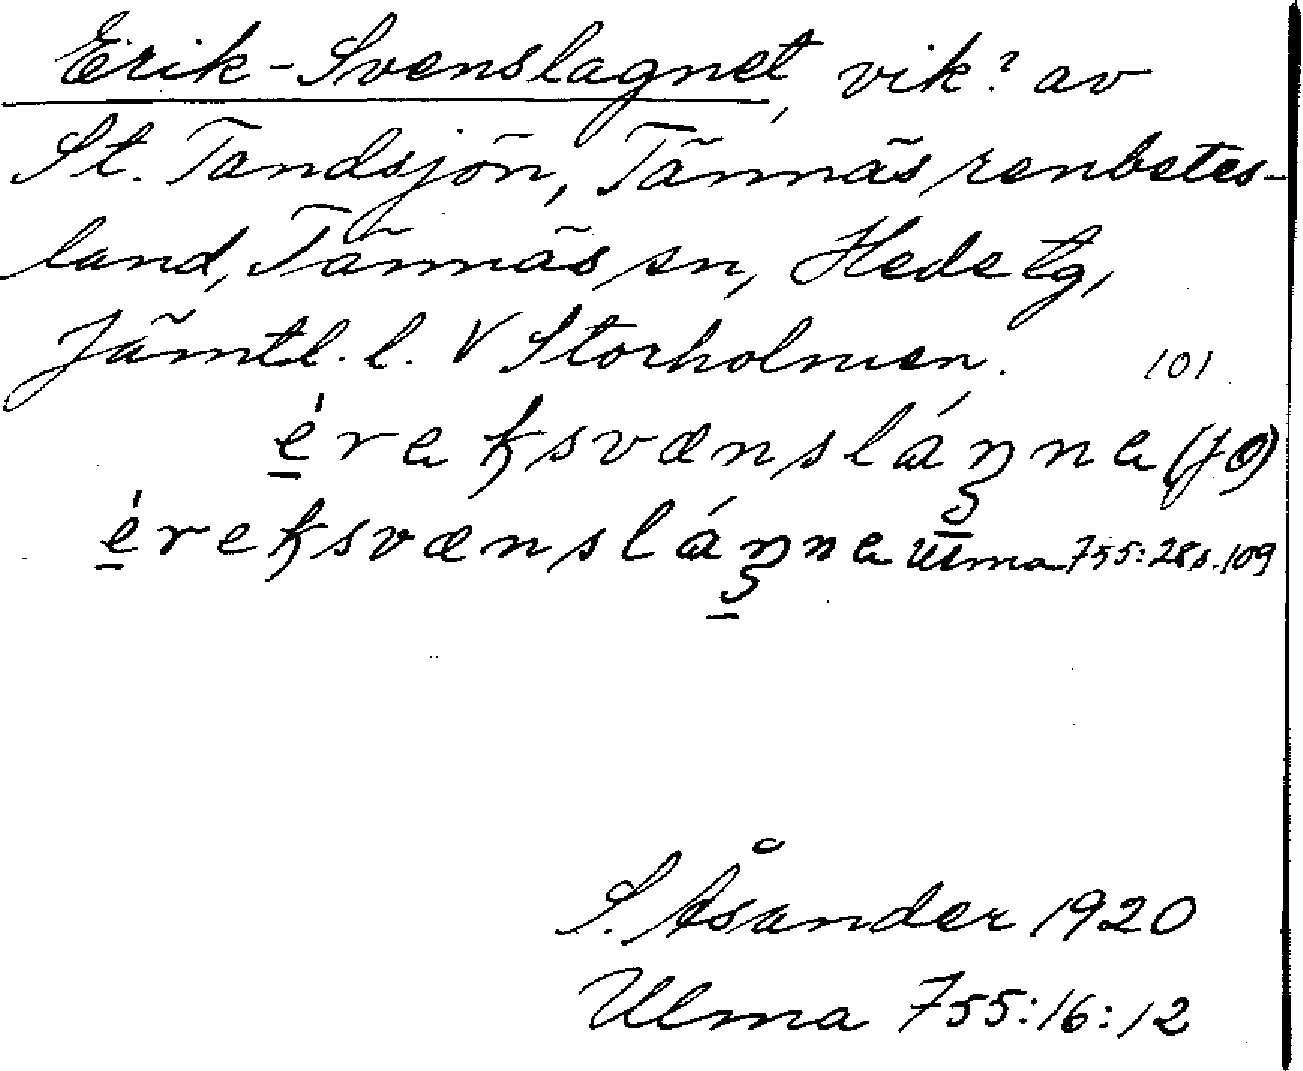 Erik-Svenslagnet, vik? av
St. Tandsjön, Tännäs renbetes-
land, Tännäs sn, Hede tg,
Jämtl. l. V Storholmen. 101
Ulma 755:28 s. 109
S. Åsander 1920
Ulma 755:16:12